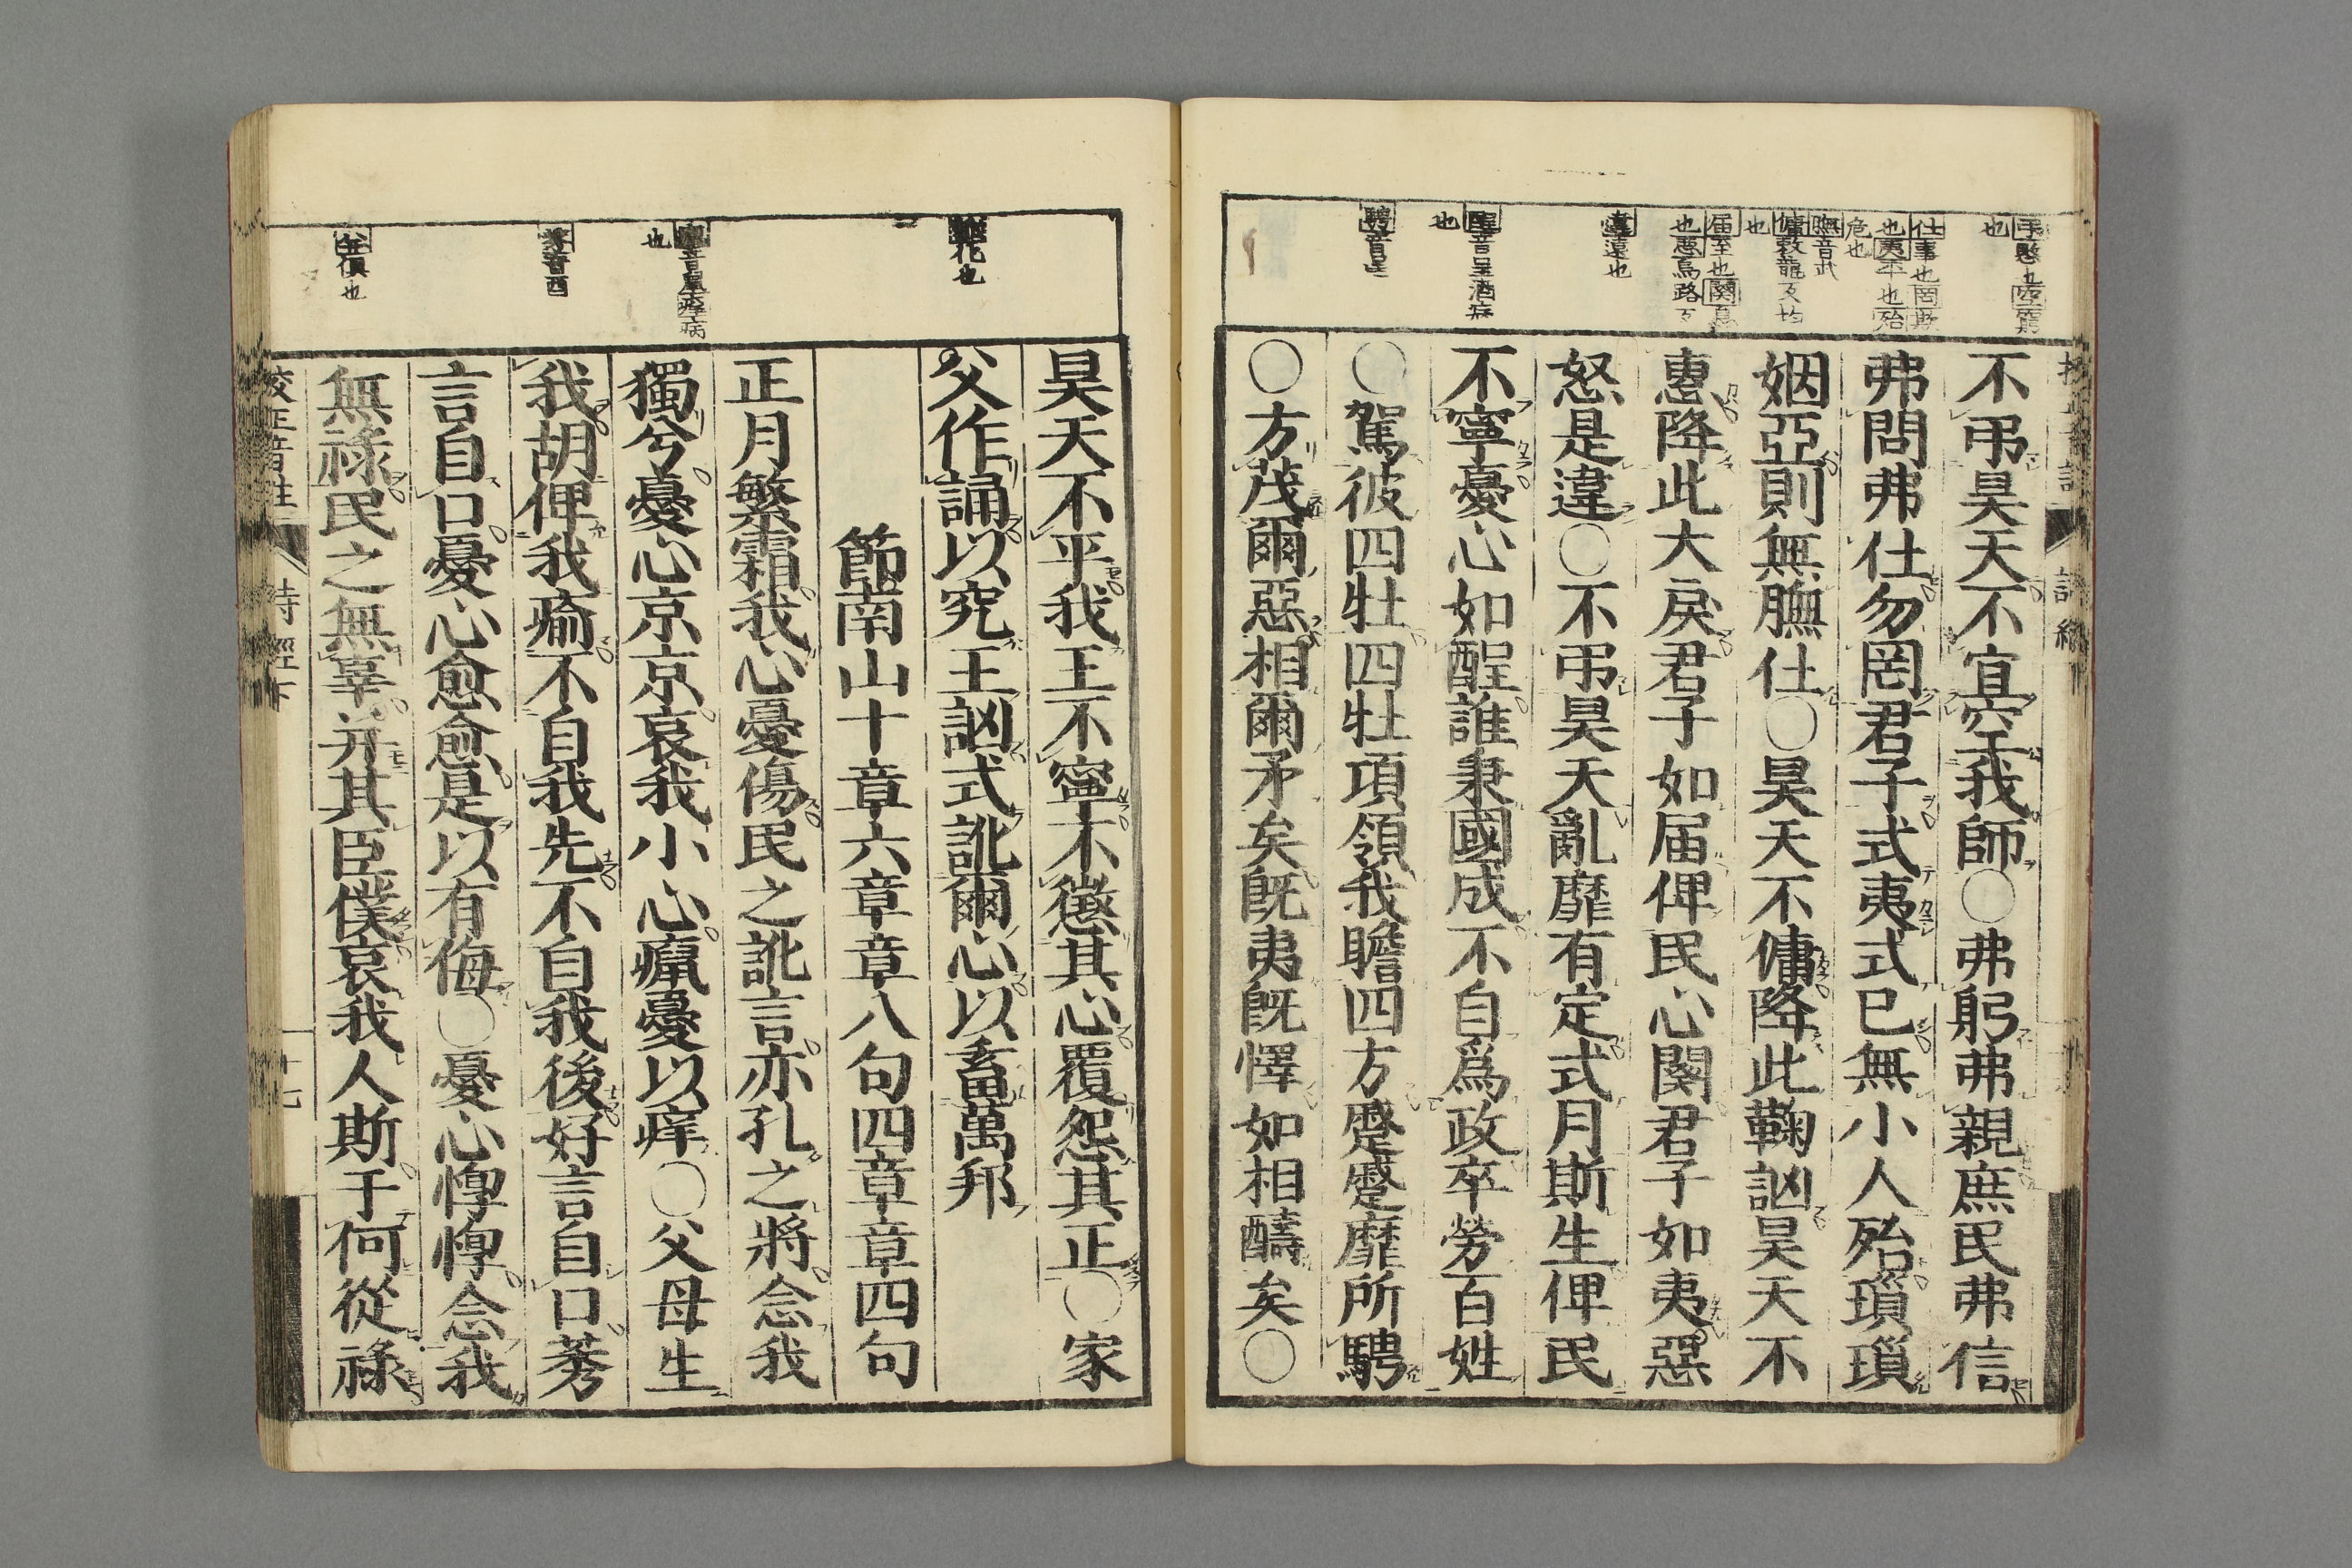 不弔昊天不宜空我師○弗躬弗親庶民弗信
弗問弗仕勿罔君子式夷式已無小人殆瑣瑣
姻亞則無膴仕○昊天不傭降此鞠訩昊天不
惠降此大戾君子如届俾民心闋君子如夷惡
怒是違○不弔昊天亂靡有定式月斯生俾民
不寧憂心如酲誰秉國成不自爲政卒勞百姓
○駕彼四牡四牡項領我瞻四方蹙蹙靡所騁
○方茂爾惡相爾矛矣旣夷旣懌如相醻矣○
昊天不平我王不寧不懲其心覆怨其正○家
父作誦以究王訩式訛爾心以畜萬邦
節南山十章六章章八句四章章四句
正月繁霜我心憂傷民之訛言亦孔之將念我
獨兮憂心京京哀我小心癙憂以痒○父母生
我胡俾我瘉不自我先不自我後好言自口莠
言自口憂心愈愈是以有侮○憂心惸惸念我
無祿民之無辜并其臣僕哀我人斯于何從祿
校正音註
詩經下
十七
仕事也罔欺
也夷平也殆
危也
膴音武
傭敕龍反均
也
届至也闋息
也惡烏路反
違遠也
酲音呈酒病
也